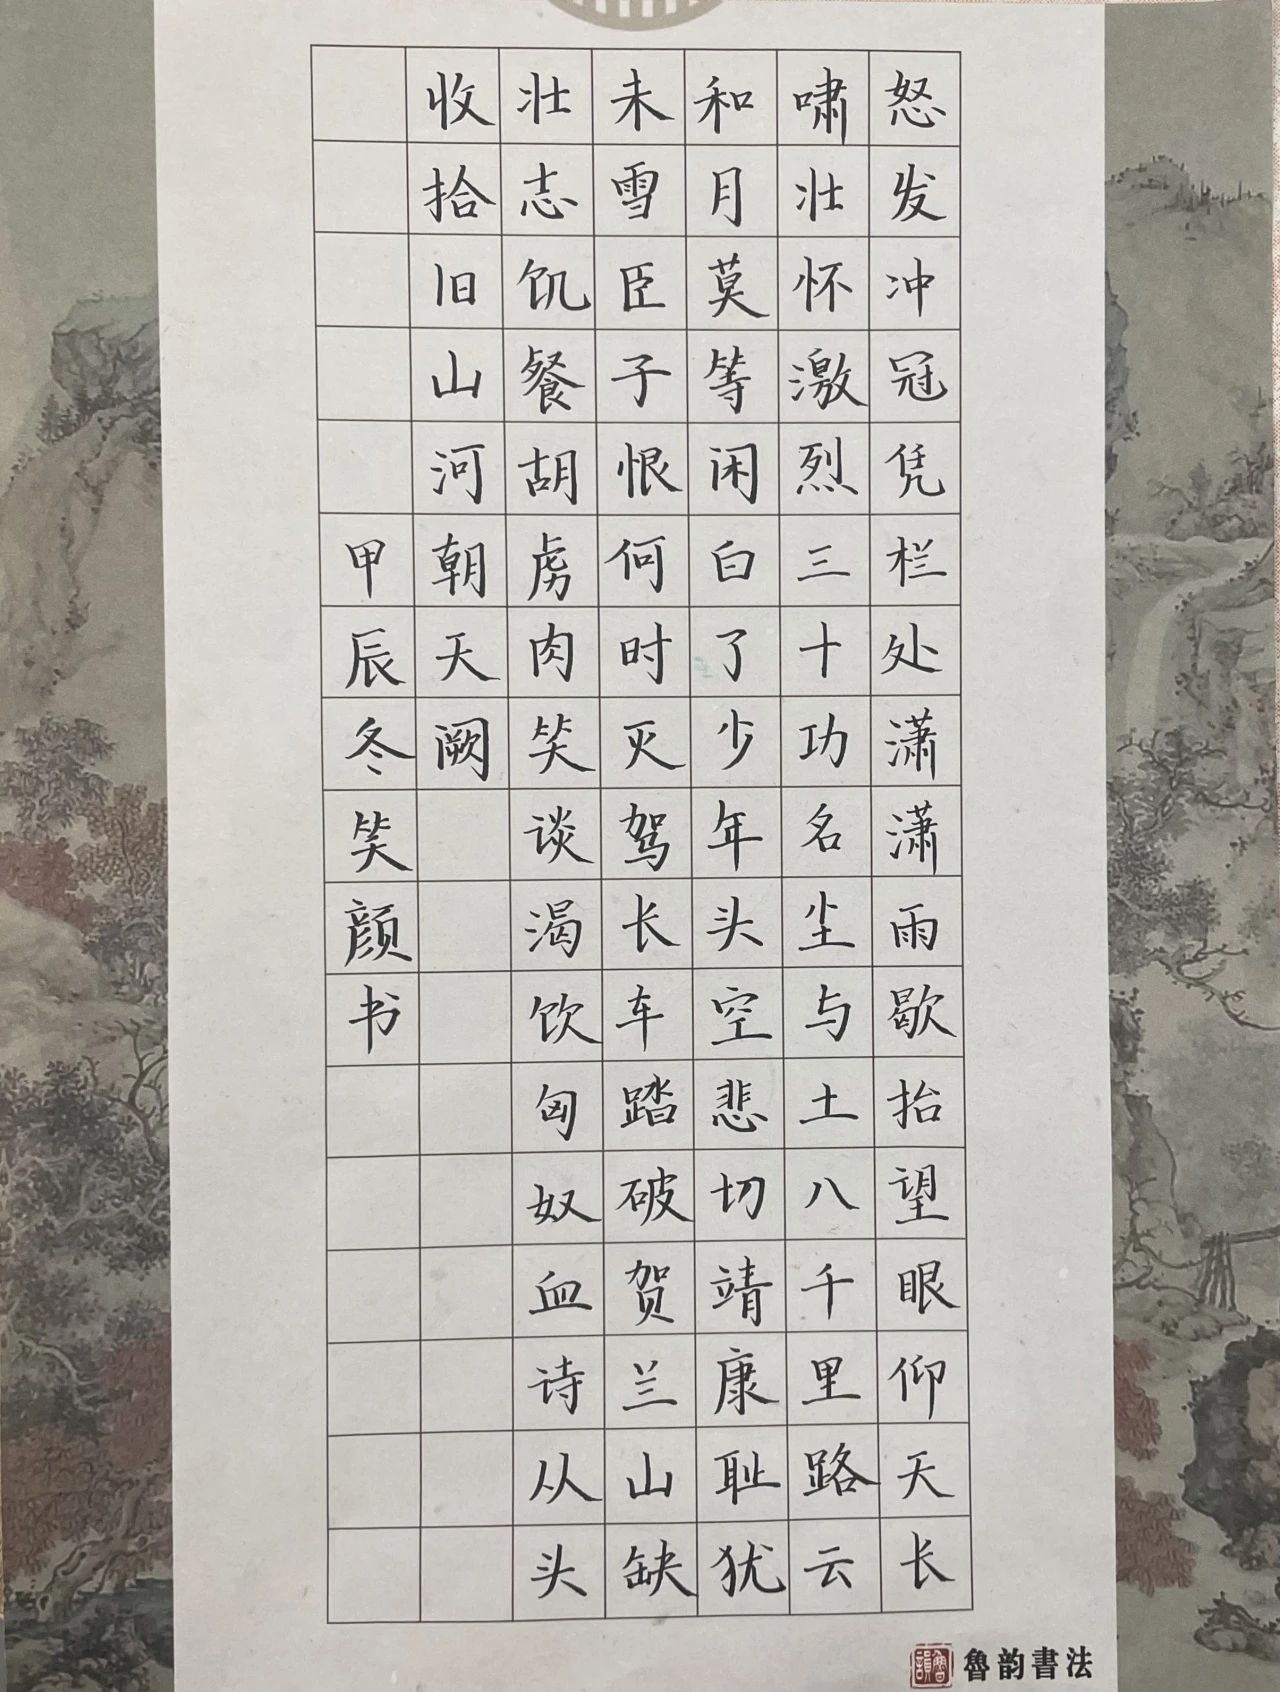 怒发冲冠凭栏处潇潇雨歇抬望眼仰天长
啸壮怀激烈三十功名尘与土八千里路云
和月莫等闲白了少年头空悲切靖康耻犹
未雪臣子恨何时灭驾长车踏破贺兰山缺
壮志饥餐胡虏肉笑谈渴饮匈奴血诗从头
收拾旧山河朝天阙
甲辰冬笑颜书
魯韵書法